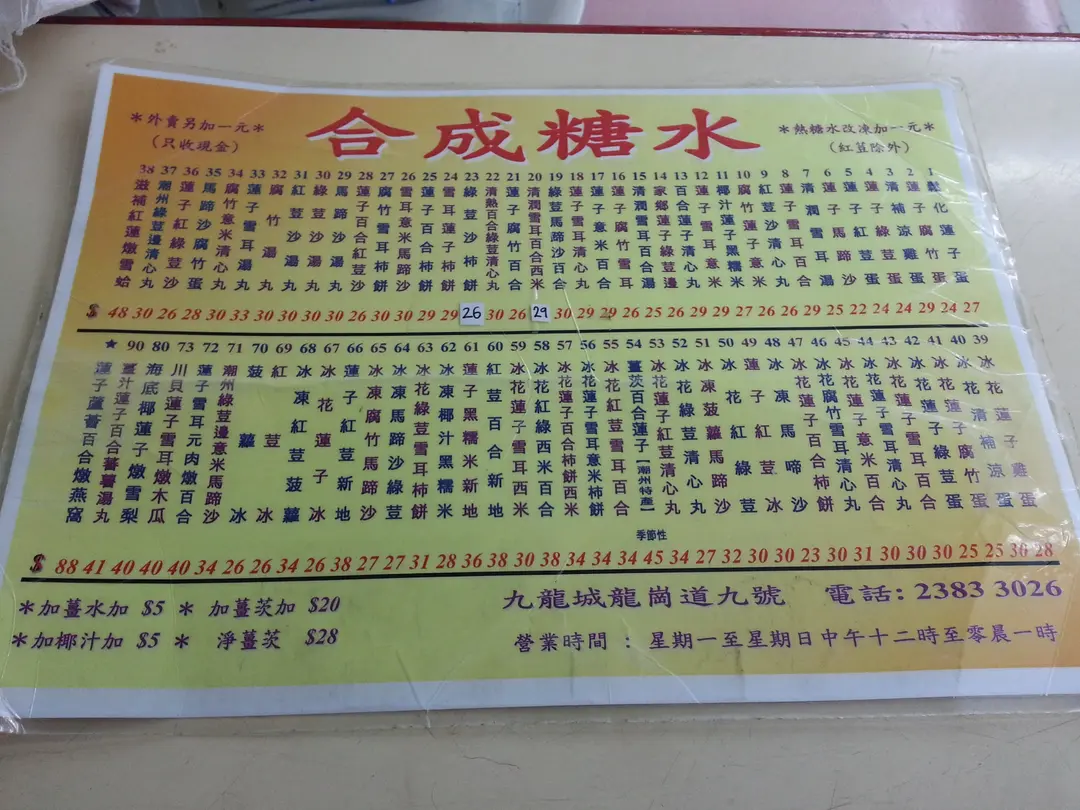 合成糖水
＊外賣另加一元＊
(只收現金)
＊熱糖水改凍加一元＊
(紅荳除外)
38 37 36 35 34 33 32 31 30 29 28 27 26 25 24 23 22 21 20 19 18 17 16 15 14 13 12 11 10 9 8 7 6 5 4 3 2 1
滋補紅蓮燉雪蛤
潮州綠荳邊清心丸
蓮子紅綠荳沙
馬蹄沙腐竹蛋
腐竹意米清心丸
蓮子雪耳湯丸
腐竹湯丸
紅荳沙湯丸
綠荳沙湯丸
馬蹄沙湯丸
蓮子百合紅荳沙
腐竹雪耳柿餅
雪耳意米馬蹄沙
蓮子百合柿餅
雪耳蓮子柿餅
綠荳沙柿餅
清熱百合綠荳清心丸
蓮子腐竹百合
清潤雪耳百合西米
綠荳馬蹄沙百合
蓮子雪耳清心丸
蓮子意米百合
蓮子腐竹雪耳
清潤雪耳百合湯
家鄉蓮子綠荳邊
百合蓮子清心丸
蓮子雪耳意米
椰汁蓮子黑糯米
腐竹蓮子意米
紅荳沙清心丸
蓮子雪耳百合
清潤雪耳湯
蓮子馬蹄沙
清補涼雞蛋
蓮子腐竹蛋
$ 48 30 26 28 30 33 30 30 30 30 26 30 30 29 29 26 30 26 29 30 29 29 26 25 26 29 30 27 26 26 29 25 22 24 24 29 24 27
★ 90 80 73 72 71 70 69 68 67 66 65 64 63 62 61 60 59 58 57 56 55 54 53 52 51 50 49 48 47 46 45 44 43 42 41 40 39
蓮子蘆薈百合燉燕窩
薑汁蓮子百合蕃薯湯丸
海底椰蓮子燉雪梨
川貝蓮子雪耳燉木瓜
蓮子雪耳元肉燉百合
潮州綠荳邊意米馬蹄沙
菠蘿冰
紅荳冰
冰凍紅荳菠蘿
冰花蓮子冰
蓮子紅荳新地
冰凍腐竹馬蹄沙
冰凍馬蹄沙綠荳
冰花綠荳雪耳柿餅
冰凍椰汁黑糯米
蓮子黑糯米新地
紅荳百合新地
冰花蓮子雪耳西米
冰花紅綠西米百合
冰花蓮子百合柿餅西米
冰花蓮子雪耳意米柿餅
冰花紅荳雪耳百合
薑茨百合蓮子【潮州特產】
季節性
冰花蓮子紅荳清心丸
冰花綠荳清心丸
冰凍菠蘿馬蹄沙
冰花紅綠荳
蓮子紅荳冰
冰凍馬啼沙
冰花蓮子百合柿餅
冰花腐竹雪耳清心丸
冰花蓮子雪耳百合
冰花蓮子清心丸
冰花蓮子雪耳百合
冰花蓮子綠荳蛋
冰花蓮子腐竹蛋
冰花清補涼雞蛋
$ 88 41 40 40 40 34 26 26 34 26 38 27 27 31 28 36 38 30 38 34 34 34 45 34 27 32 30 30 23 30 31 30 30 30 25 25 30 28
＊加薑水加 $5 ＊ 加薑茨加 $20
＊加椰汁加 $5 ＊ 淨薑茨 $28
九龍城龍崗道九號 電話: 2383 3026
營業時間 : 星期一至星期日中午十二時至零晨一時